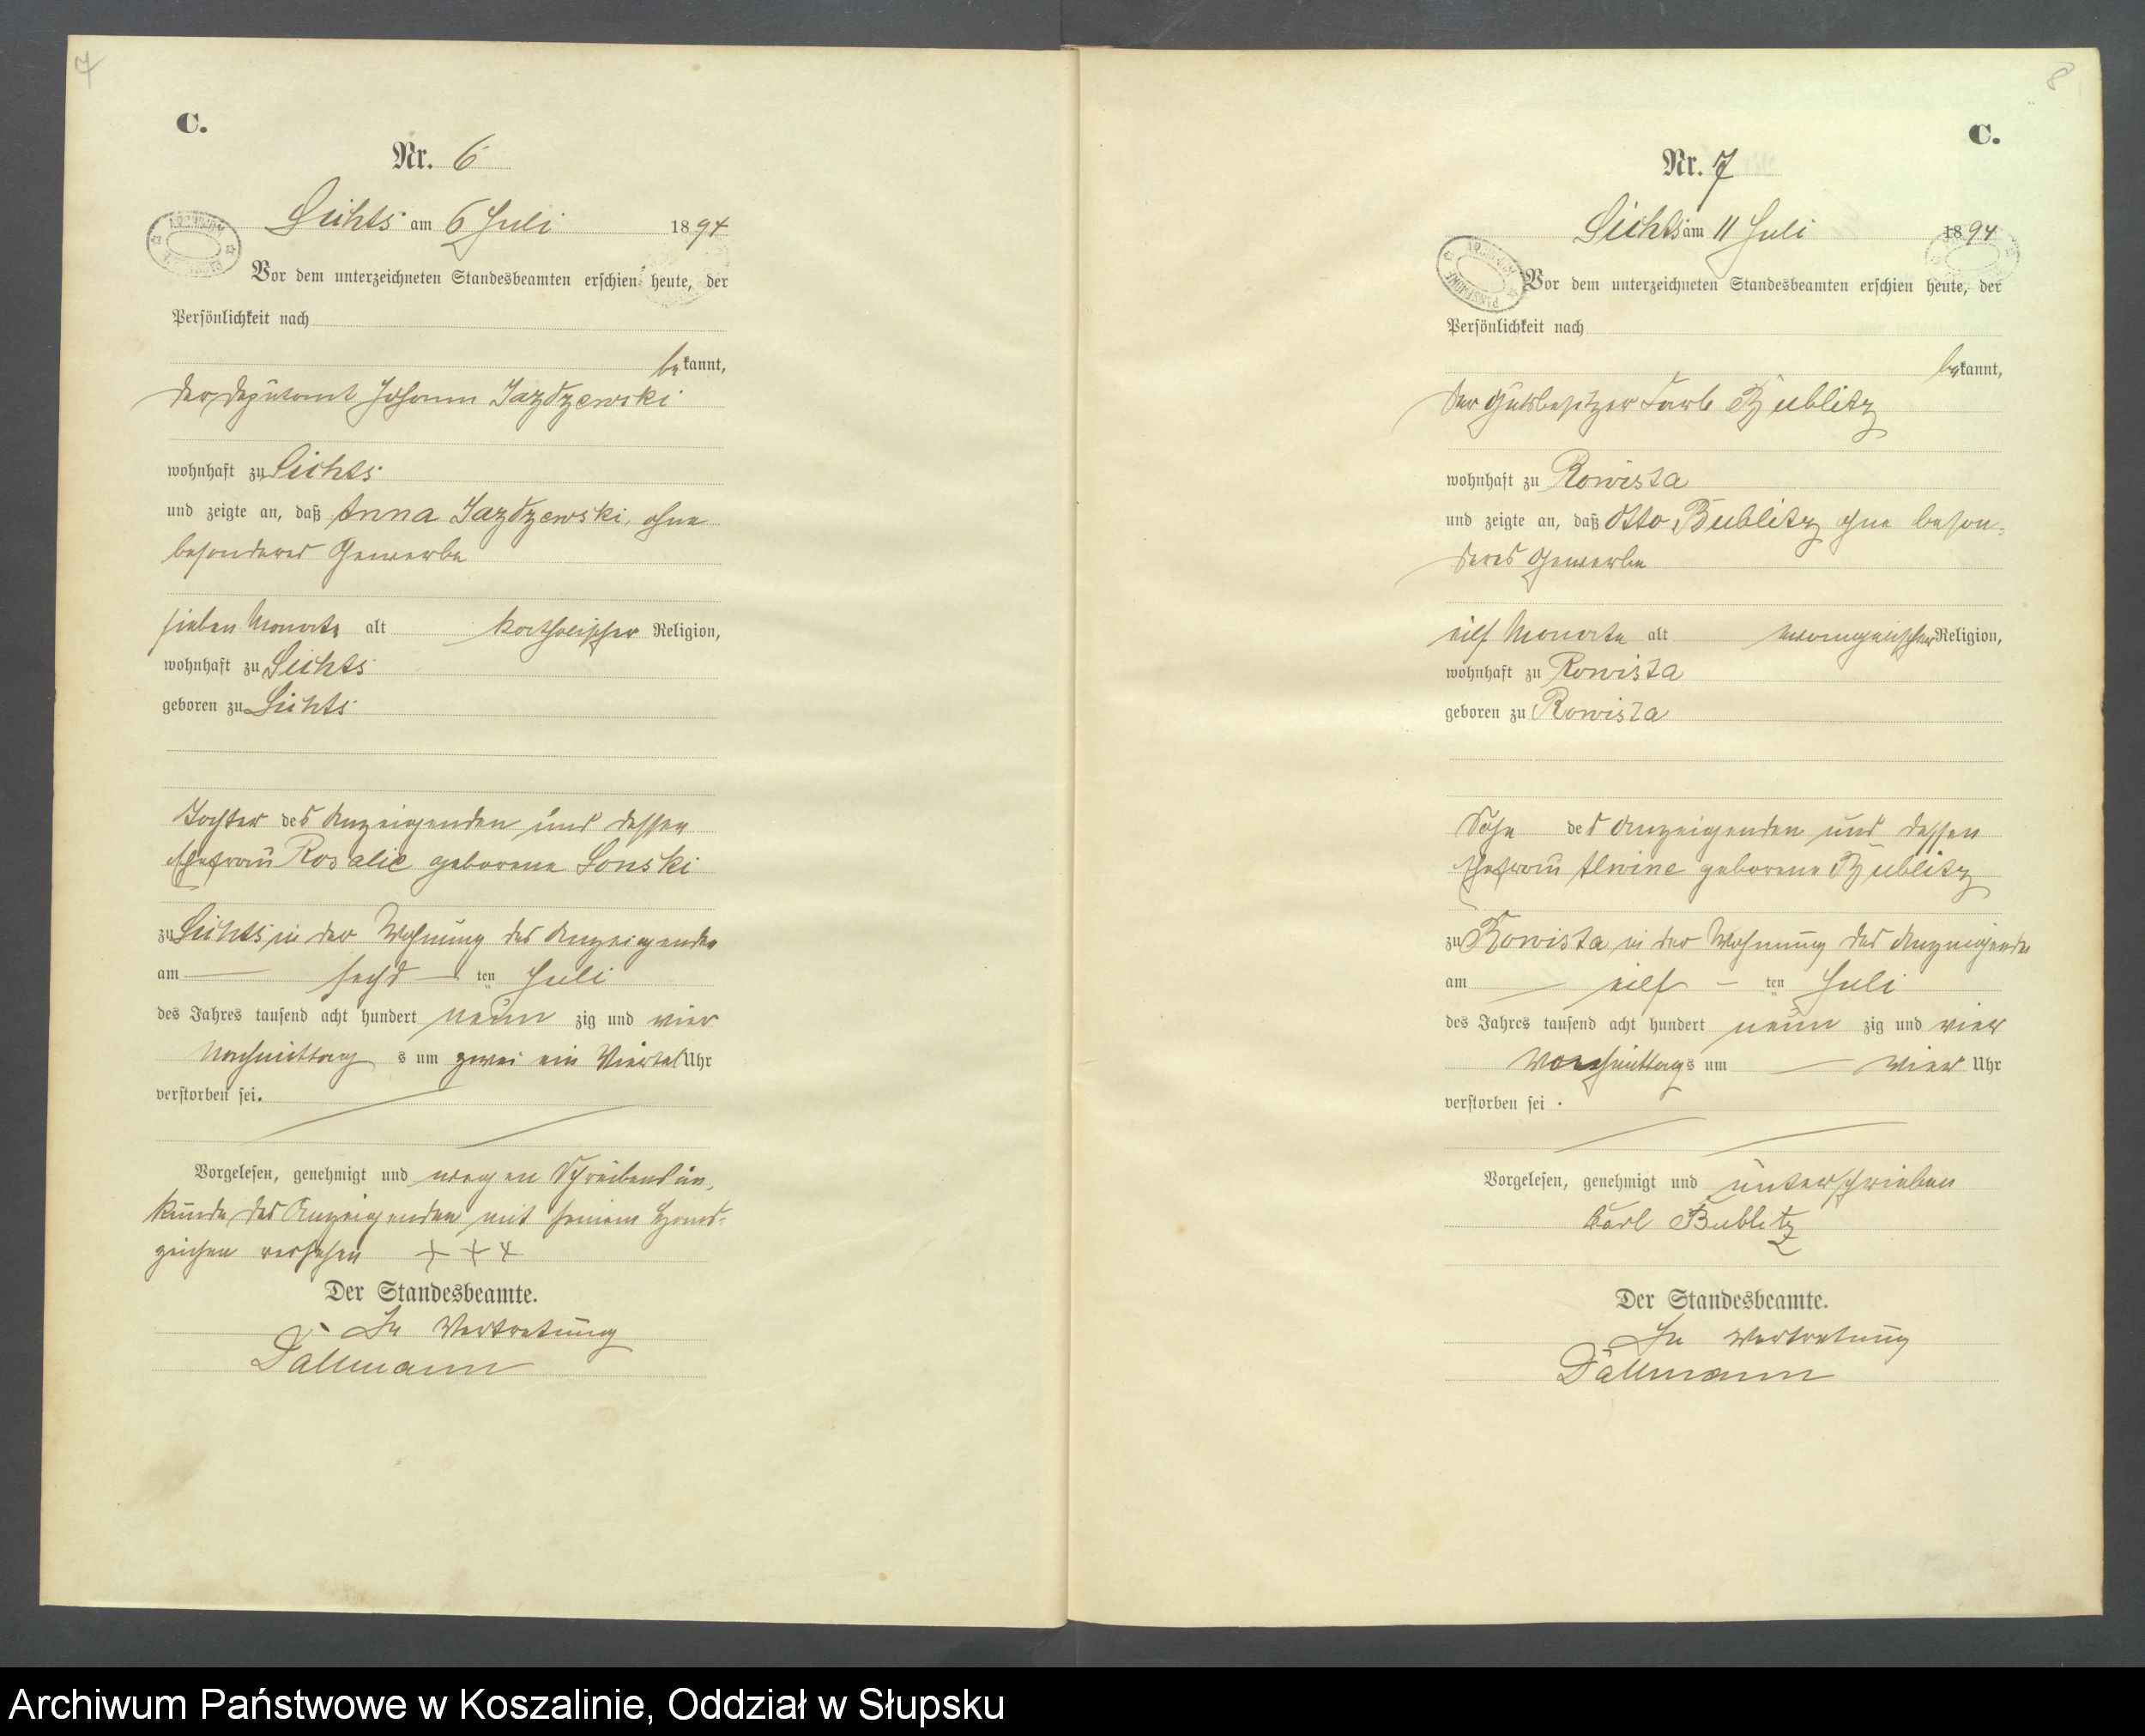 7
C.
Nr. 6
Lichts am 6 Juli 1894
Vor dem unterzeichneten Standesbeamten erschien heute, der
Persönlichkeit nach
bekannt,
der Deputant Johann Jazdzewski
wohnhaft zu Lichts
und zeigte an, daß Anna Jazdzewski, ohne
besonderes Gewerbe
sieben Monate alt katholischer Religion,
wohnhaft zu Lichts
geboren zu Lichts
Tochter des Anzeigenden und dessen
Ehefrau Rosalie geborene Lonski
zu Lichts in der Wohnung des Anzeigenden
am sechsten Juli
des Jahres tausend acht hundert neunzig und vier
Nachmittags um zwei ein Viertel Uhr
verstorben sei.
Vorgelesen, genehmigt und wegen Schreibensun-
kunde des Anzeigenden mit seinem Hand-
zeichen versehen + + +
Der Standesbeamte.
In Vertretung
Dallmann
8
C.
Nr. 7
Lichts am 11 Juli 1894
Vor dem unterzeichneten Standesbeamten erschien heute, der
Persönlichkeit nach
bekannt,
der Gutsbesitzer Carl Bublitz
wohnhaft zu Rowista
und zeigte an, daß Otto Bublitz ohne beson-
deres Gewerbe
eilf Monate alt evangelischer Religion,
wohnhaft zu Rowista
geboren zu Rowista
Sohn des Anzeigenden und dessen
Ehefrau Alwine geborene Bublitz
zu Rowista in der Wohnung des Anzeigenden
am eilften Juli
des Jahres tausend acht hundert neunzig und vier
Vormittags um vier Uhr
verstorben sei.
Vorgelesen, genehmigt und unterschrieben
Karl Bublitz
Der Standesbeamte.
In Vertretung
Dallmann
Archiwum Państwowe w Koszalinie, Oddział w Słupsku